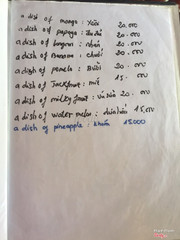 a dish of mango : Xoài 20.000
a dish of papaya : đu đủ 20.000
a dish of longan : nhãn 20.000
a dish of Banana : chuối 20.000
a dish of pomelo : Bưởi 20.000
a dish of Jackfruit : mít 15.000
a dish of milky fruit : Vú sữa 20.000
a dish of water melon : dưa hấu 15.000
a dish of pineapple : khóm 15.000